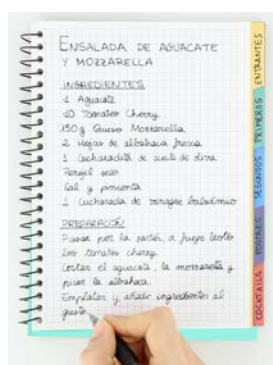 ENSALADA DE AGUACATE
Y MOZZARELLA
INGREDIENTES
1 Aguacate
10 Tomates Cherry
150g Queso Mozzarella
2 Hojas de albahaca fresca
1 Cucharadita de aceite de oliva
Perejil seco
Sal y pimienta
1 Cucharada de vinagre balsámico
PREPARACIÓN
Pasar por la sartén, a fuego lento
los tomates cherry
Cortar el aguacate, la mozzarella y
picar la albahaca
Emplatar y añadir ingredientes al
gusto
ENTRANTES
PRIMEROS
SEGUNDOS
POSTRES
COCKTAILS